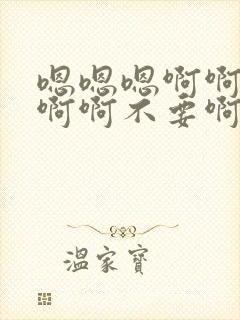 嗯嗯嗯啊啊
啊啊不要啊
温家宝